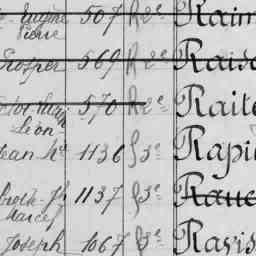 Eugène 507 R 2e Raim
Pierre
Prosper 569 R 2e Raiso
570 R 2e Raite
Léon
Jean 1136 G 3e Rapi
1137 G 3e
Marcel
Joseph 1067 G 3e Ravis